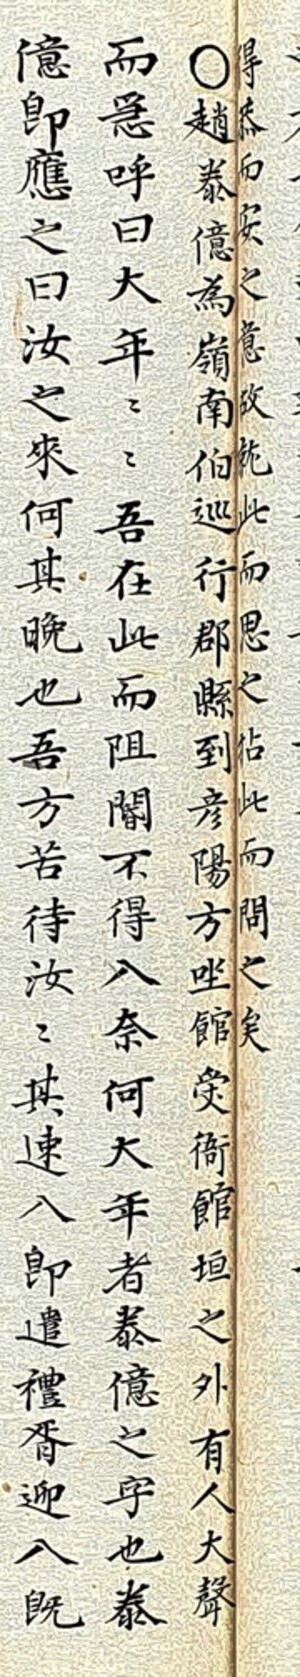 得恭而安之意故就此而思之拈此而問之矣
〇趙泰億為嶺南伯巡行郡縣到彦陽方坐館受衙館垣之外有人大聲
而急呼曰大年〻〻吾在此而阻閽不得入奈何大年者泰億之字也泰
億卽應之曰汝之來何其晩也吾方苦待汝〻其速入卽遣禮胥迎入旣